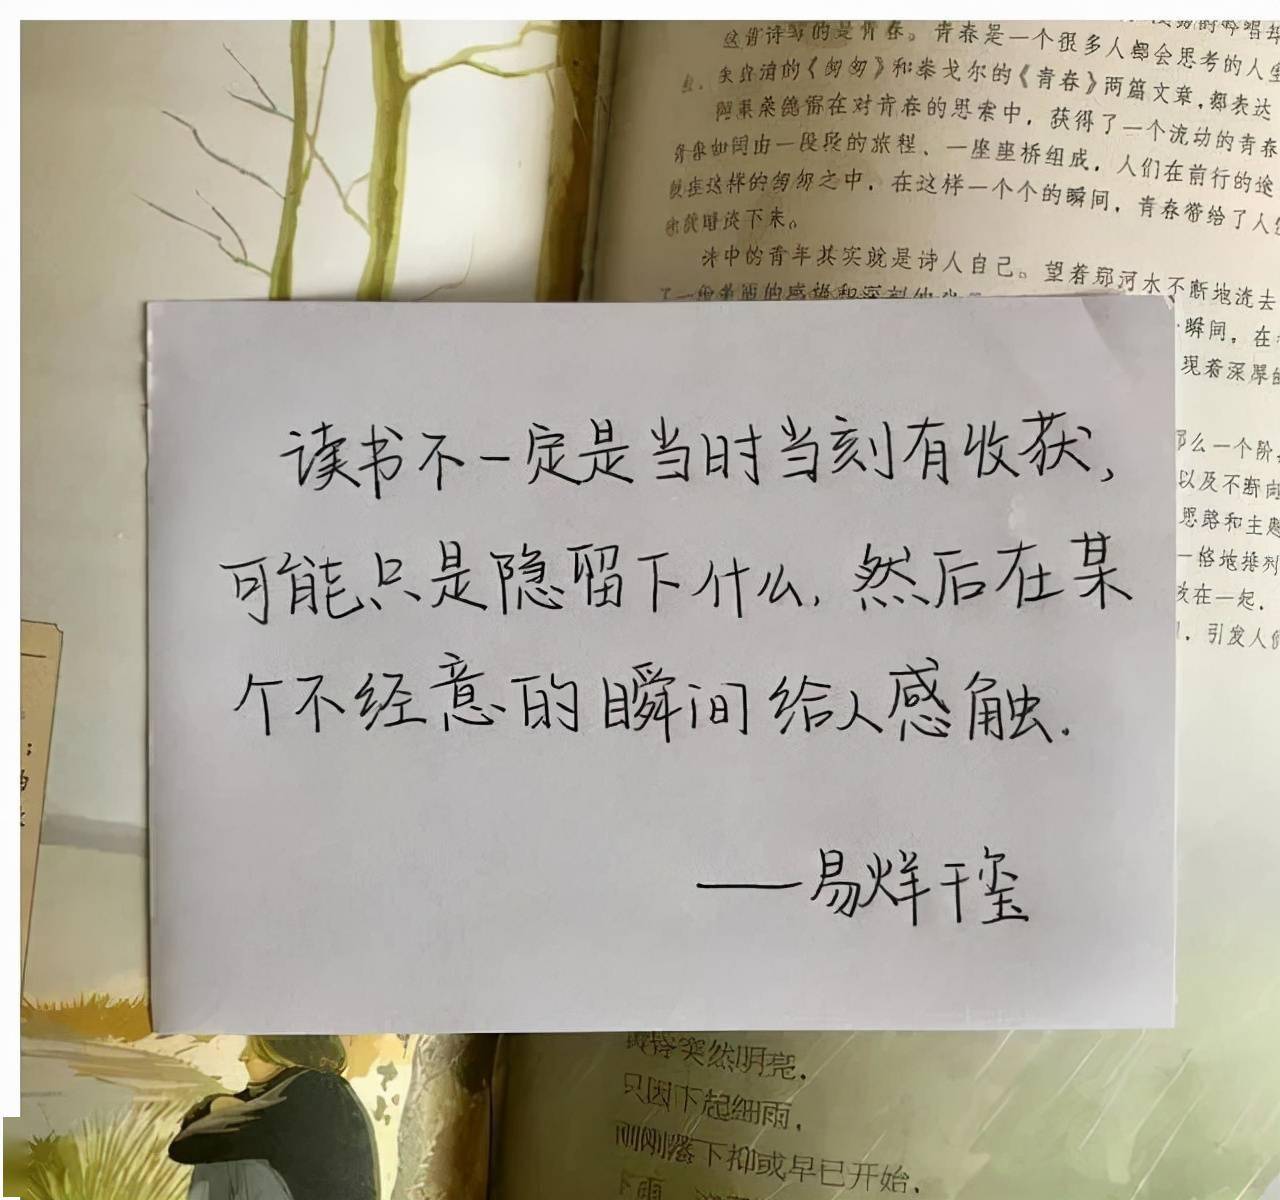 这首诗写的是青春。青春是一个很多人都会思考的人生
朱自清的《匆匆》和泰戈尔的《青春》两篇文章,都表达
在对青春的思索中,获得了一个流动的青春
一段段的旅程、一座座桥组成,人们在前行的途
就在这样的匆匆之中,在这样一个个的瞬间,青春带给了人
下来。
诗中的青年其实就是诗人自己。望着那河水不断地流去
瞬间。在
现着深厚的
那么一个阶
以及不断向
思路和主题
一格地排列
放在一起,
引发人们
读书不一定是当时当刻有收获,
可能只是隐留下什么,然后在某
个不经意的瞬间给人感触.
——易烊千玺
黄昏突然明亮,
只因下起细雨,
刚刚落下抑或早已开始,
下雨